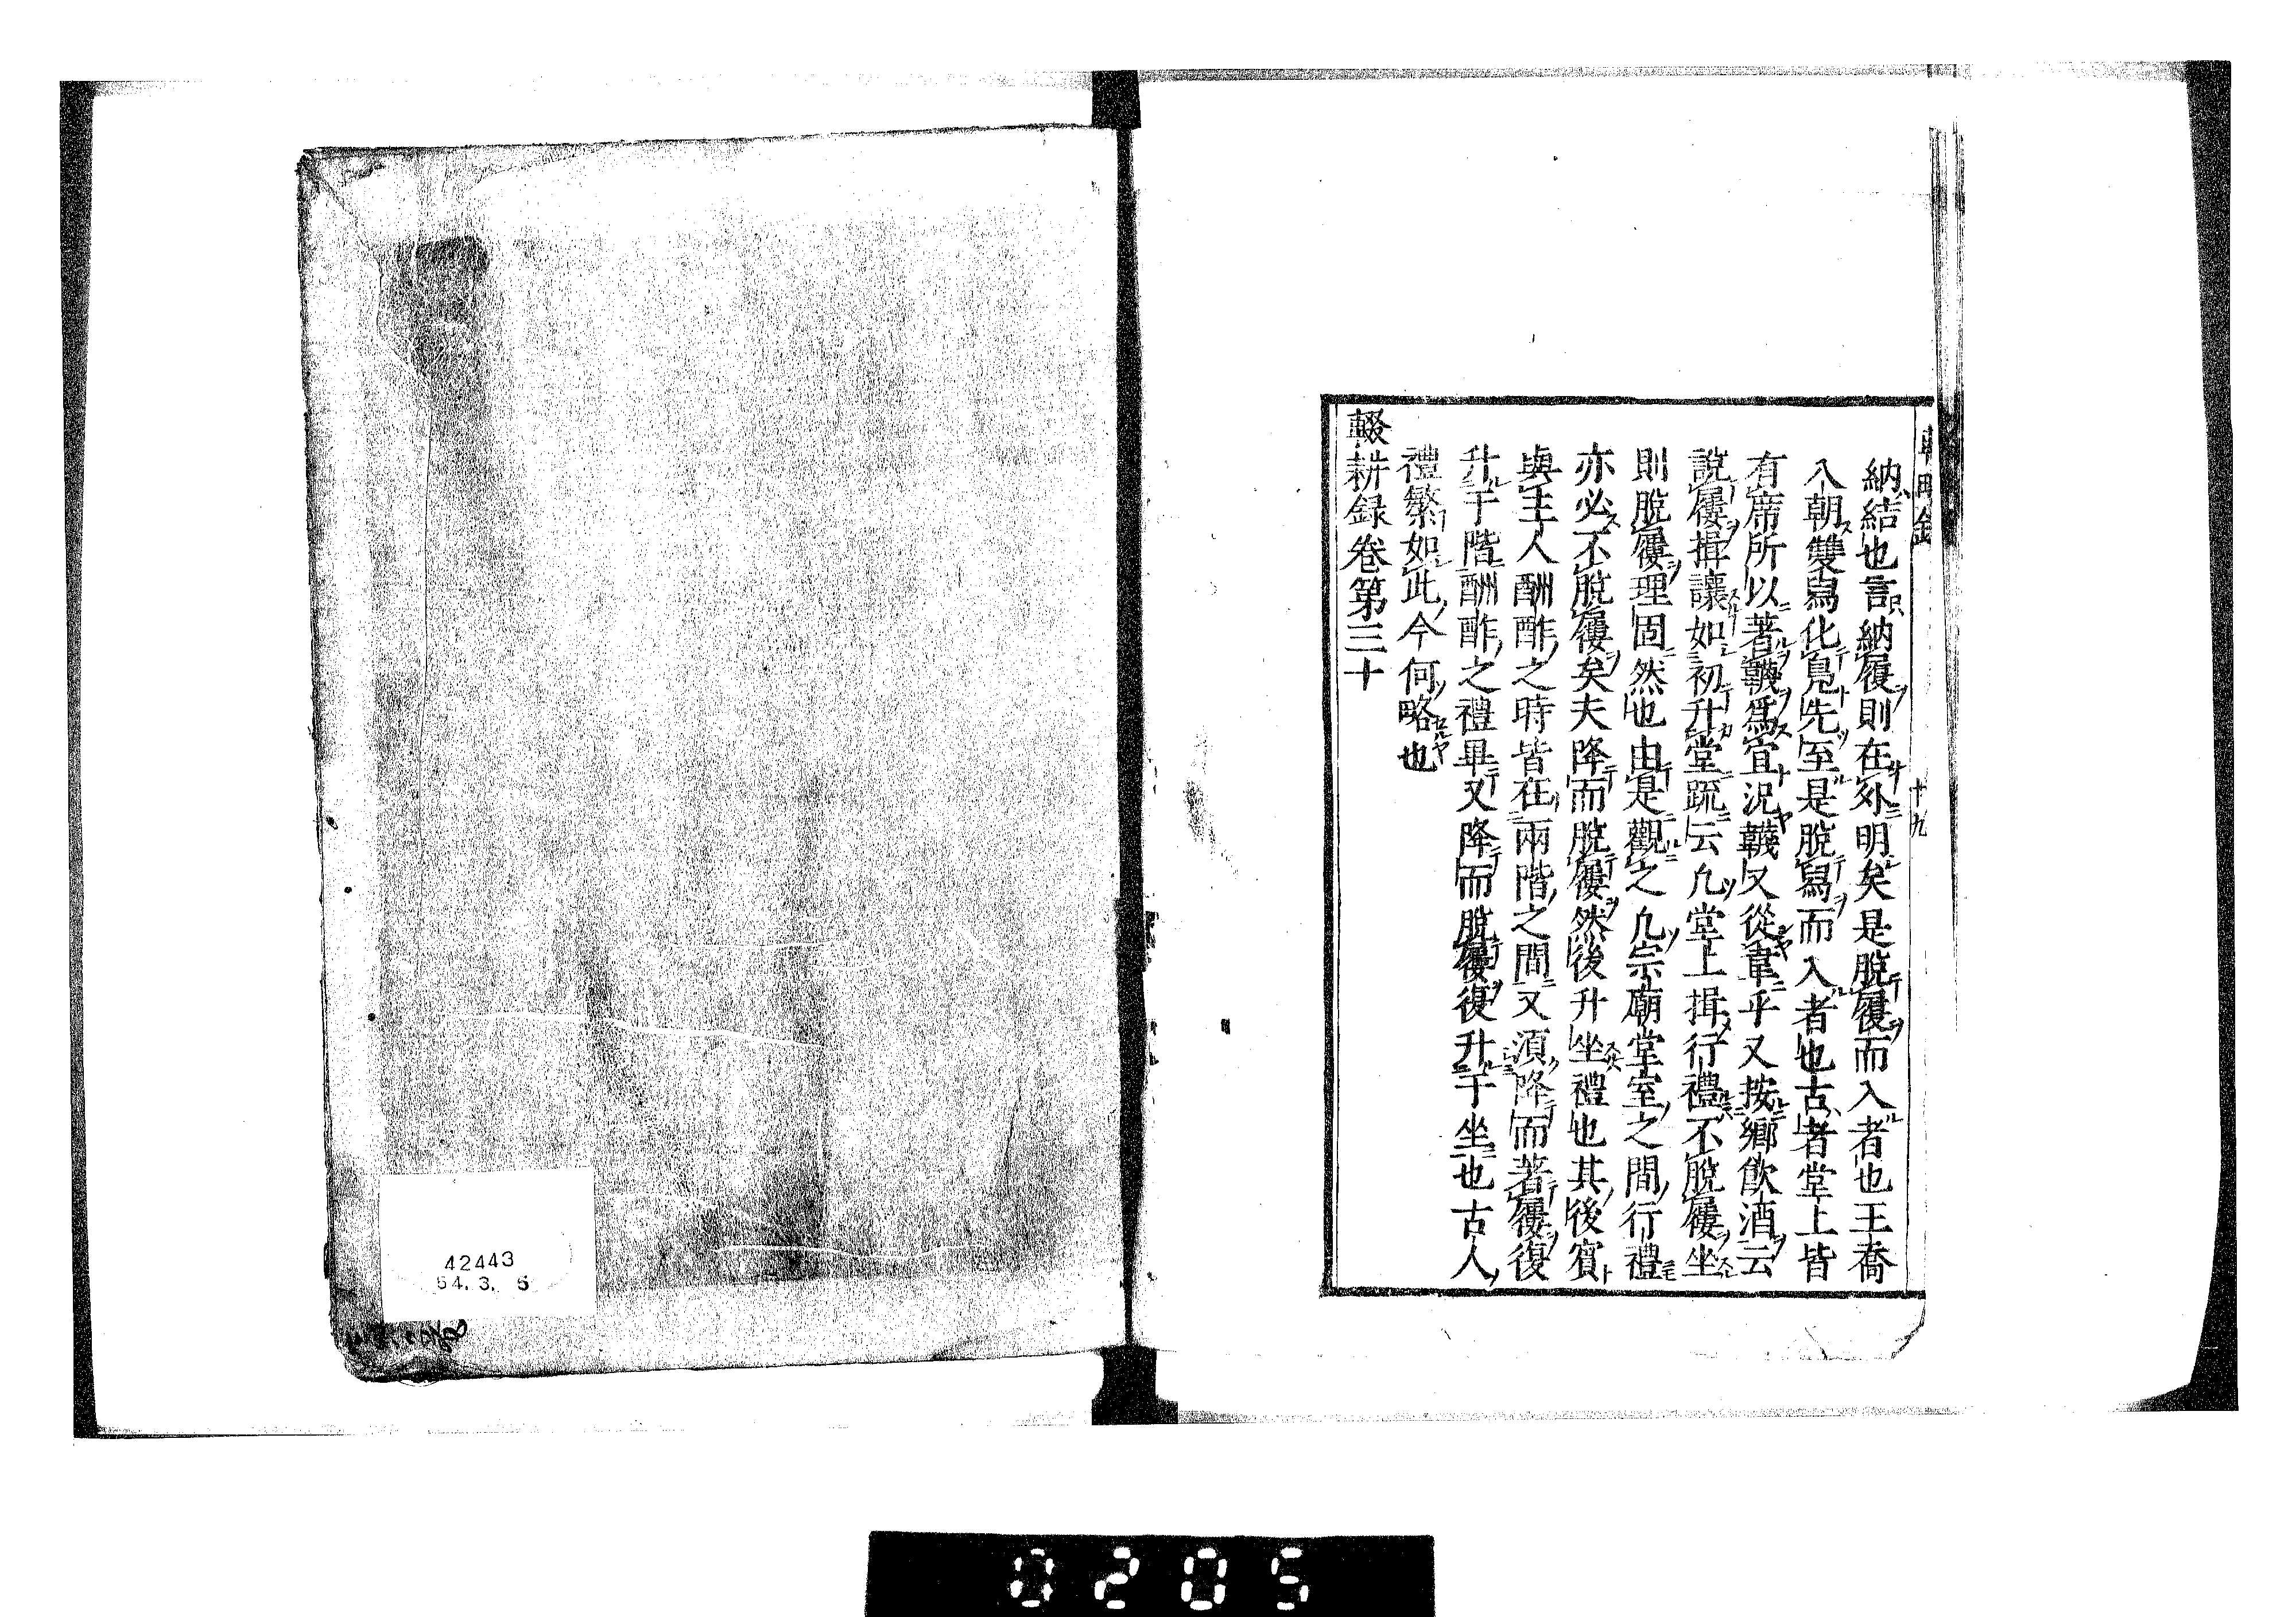 納結也言納履則在外明矣是脫履而入者也王喬
入朝雙舄化鳧先至是脫舄而入者也古者堂上皆
有席所以著韈爲宜況韈又從韋乎又按鄉飲酒云
說屨揖讓如初升堂疏云凡堂上揖行禮不脫屨坐
則脫屨理固然也由是觀之凡宗廟堂室之間行禮
亦必不脫屨矣夫降而脫屨然後升坐禮也其後賓
與主人酬酢之時皆在兩階之間又須降而著屨復
升于階酬酢之禮畢又降而脫屨復升于坐也古人
禮繁如此今何略也
輟耕録卷第三十
十九
42443
54. 3. 5
0205